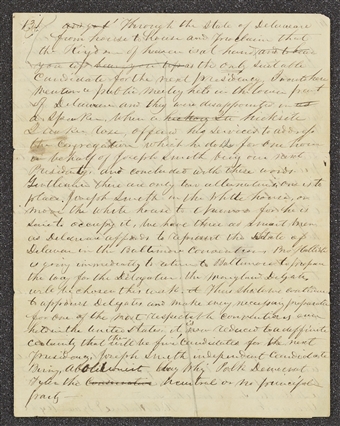 13
through the State of Deleware
from house to house and proclaim that
the Kingdom of heaven is at hand
the only suitable
Candidate for the next presidency
public meeting held in the lower part
of Delaware and they were disappointed in
a Speaker, when a
Lawyer rose, offered his services to address
the Congregation which he did for one hour
in behalf of Joseph Smith being our next
President, and concluded with these words
Gentlemen there are only two alternatives
place Joseph Smith in the White house, or
move the White house to for he is
sure to occupy it, we have three as smart men
as Delaware affords to represent the State of
Delaware in the Baltimore Convention,
is going immediately to return to Baltimore to prepare
the way for the Delegation the Maryland Delegates
will be chosen this week. Thus shall we continue
to appoint Delegates and make every necessary preparation
for one of the most respectable Conventions ever
held in the United States, it is reduced to a definite
certainty that there will be four Candidates for the next
Presidency. Joseph Smith independent Candidate
Birney Abolitionist Clay Whig Polk Democrat
Tyler the or no principle
party